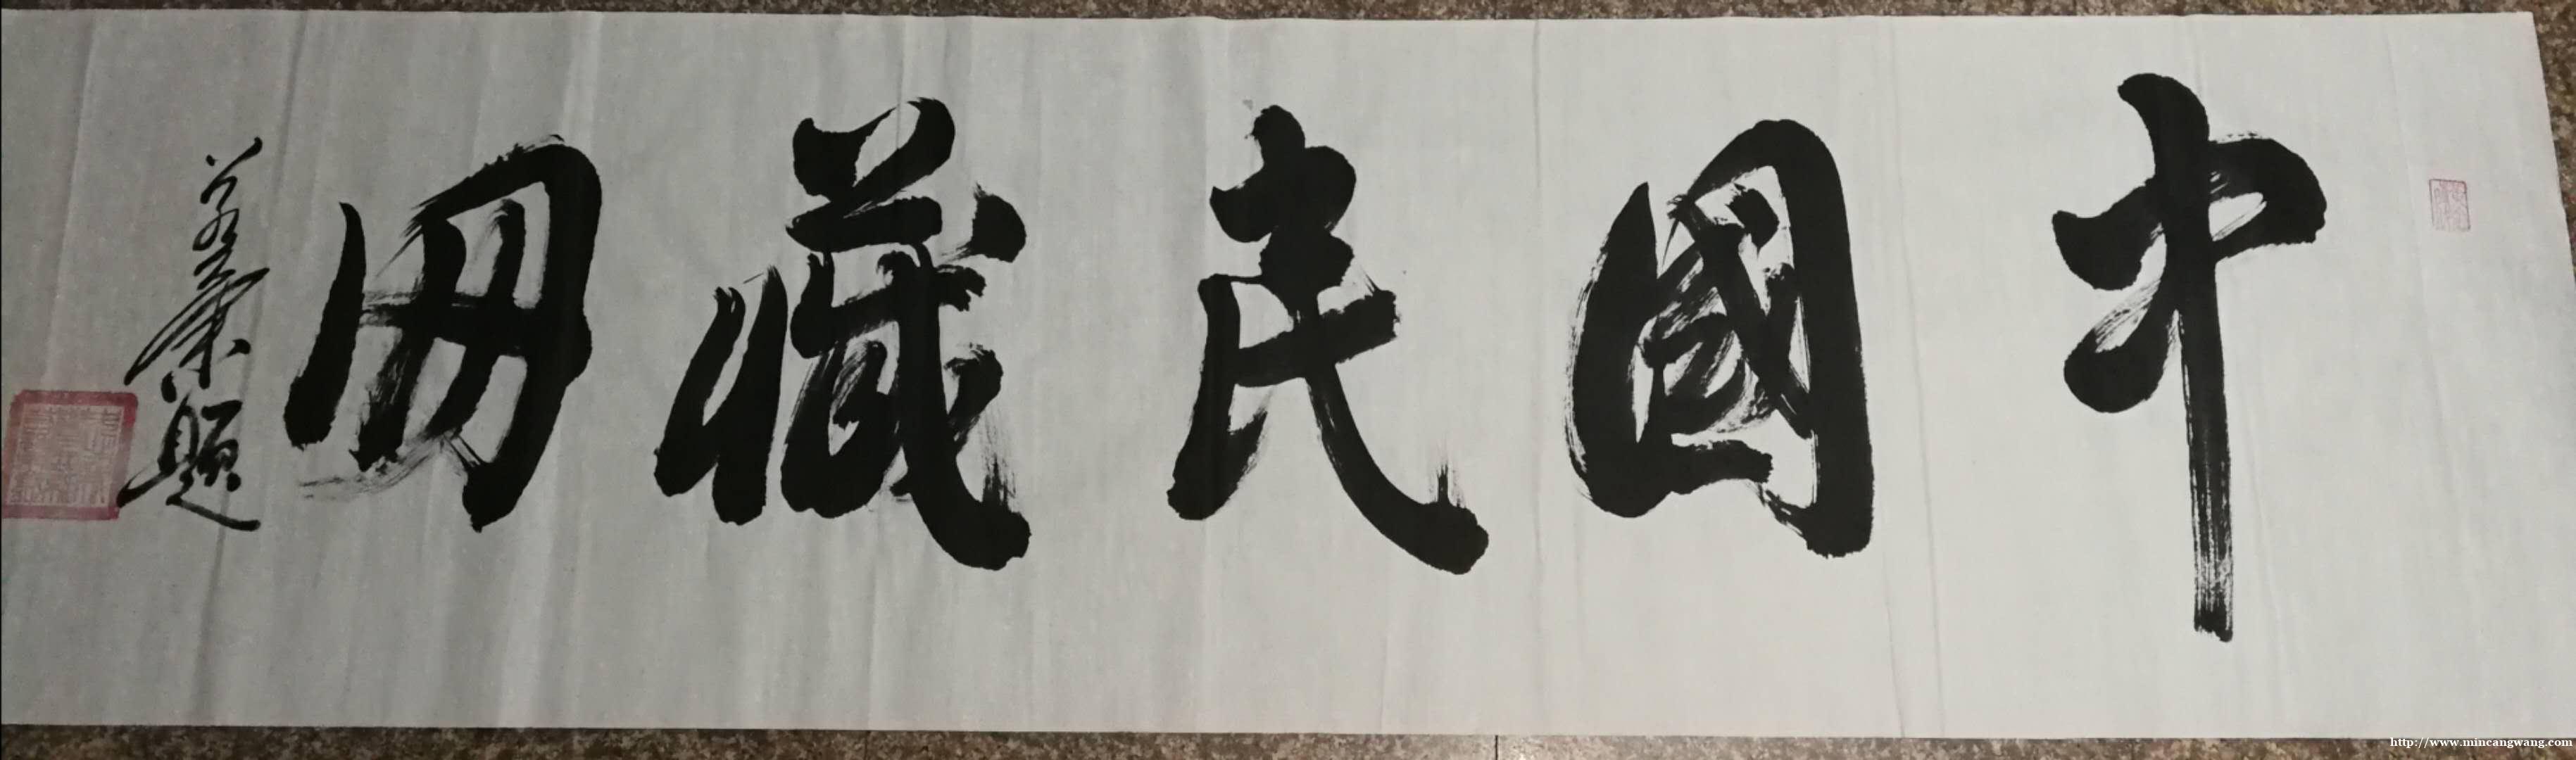 中國民藏网
題
http://www.mincangwang.com